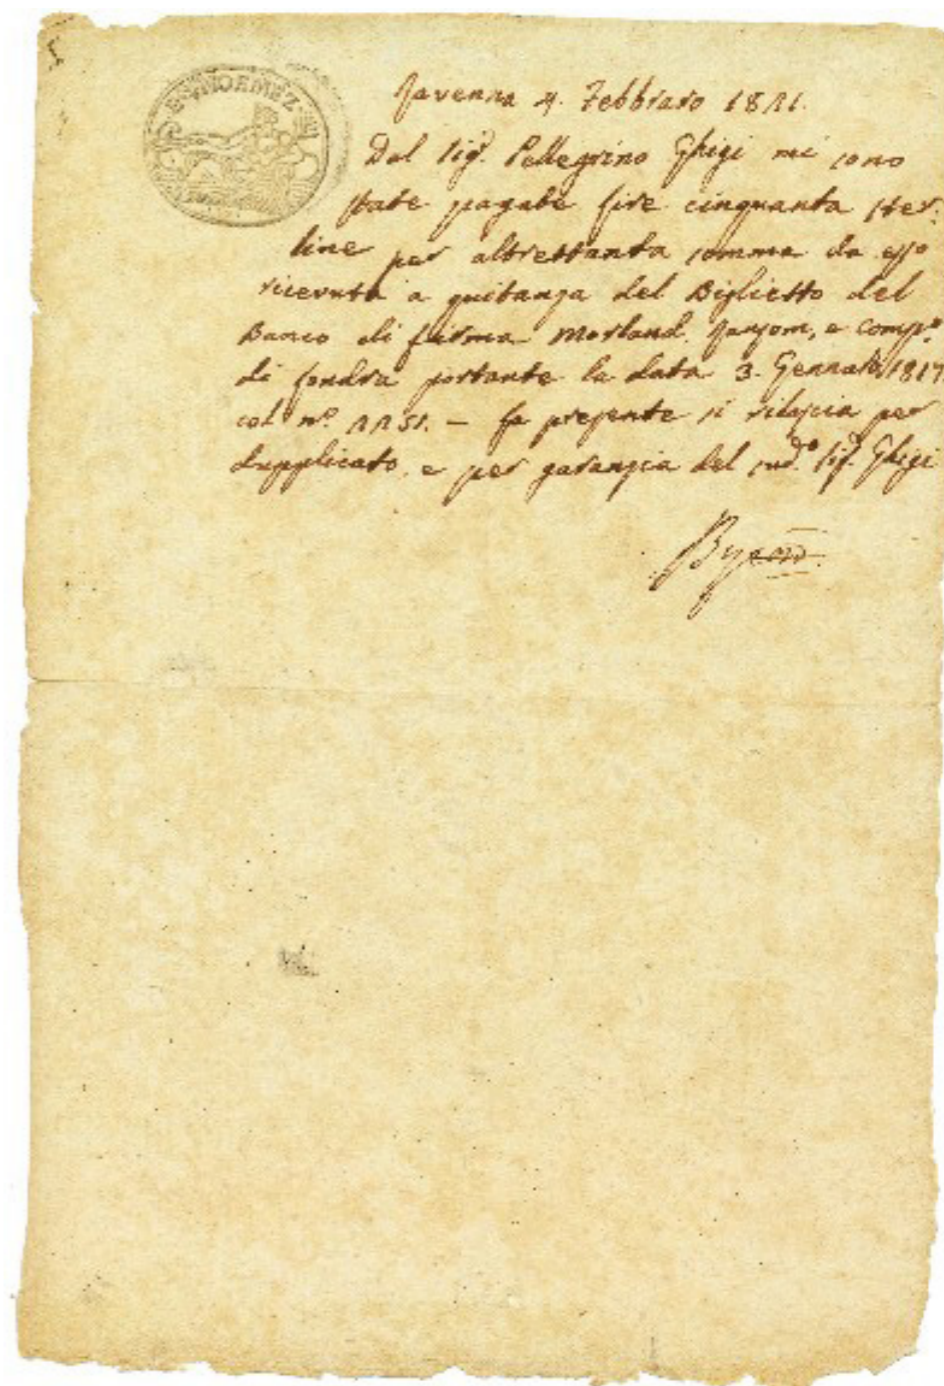 Ravenna 4. Febbraro 1821.
Dal Sigr. Pellegrino Ghigi mi sono
state pagate Lire cinquanta ster:
line per altrettanta somma da esso
ricevuta a quitanza del Biglietto del
Banco di firma Morland. Ransom, e Compo.
di Londra portante la data 3. Gennaro 1817
col no. 2251. – La presente si rilascia per
dupplicato. e per garanzia del sud.o Sigr. Ghigi
Byron